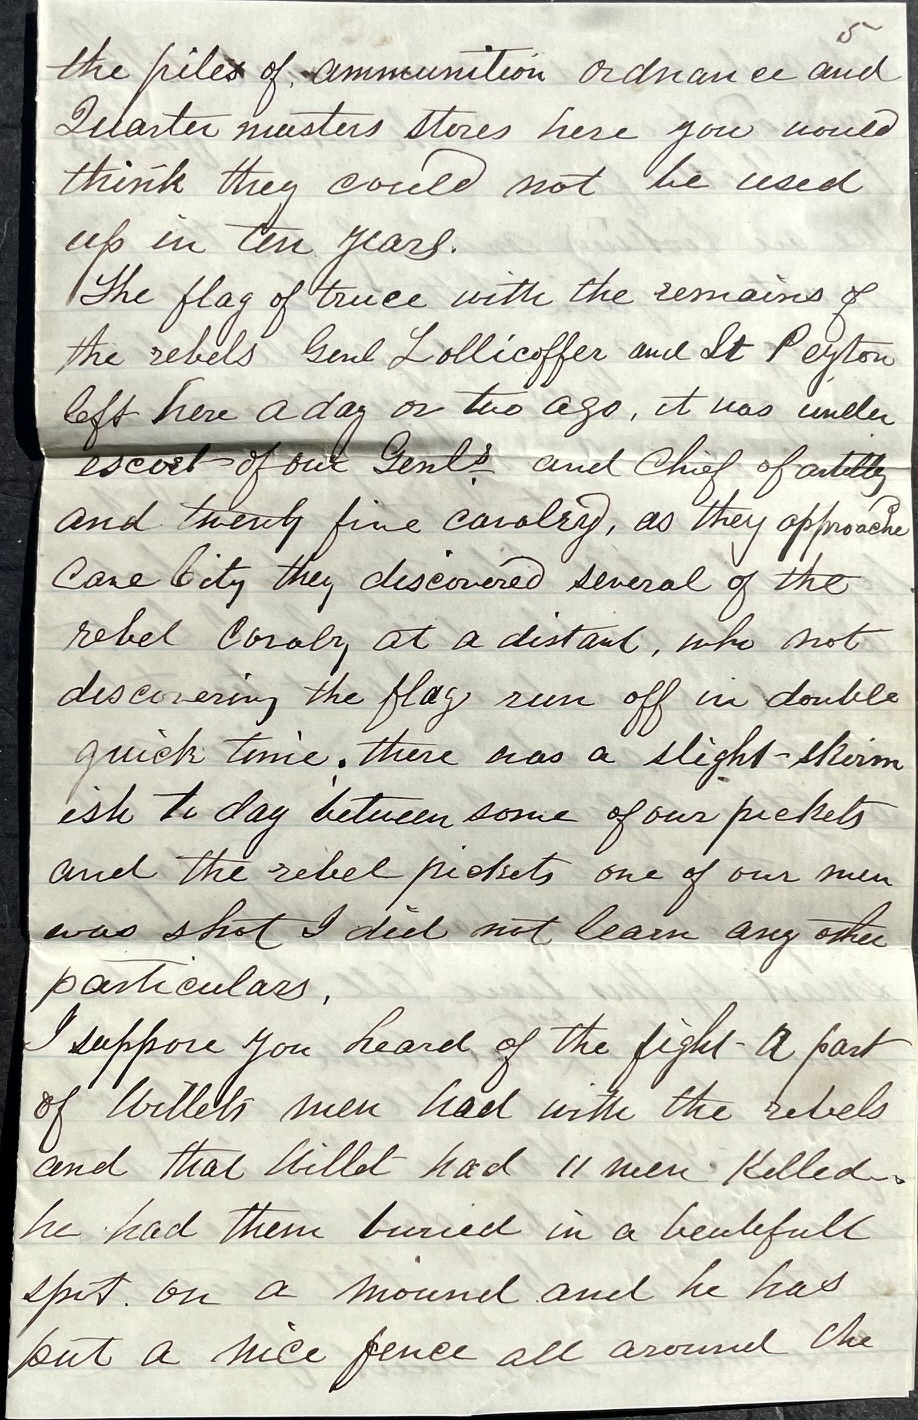 5
the piles of ammunition ordnance and
Quarter masters stores here you would
think they could not be used
up in ten years.
The flag of truce with the remains of
the rebels Genl Zollicoffer and Lt Peyton
left here a day or two ago, it was under
escort of our Genls and Chief of artilly
and twenty five cavalry, as they approache
Cave City they discovered several of the
rebel Cavalry at a distant, who not
discovering the flag run off in double
quick time. there was a slight skirm
ish to day between some of our pickets
and the rebel pickets one of our men
was shot I did not learn any other
particulars,
I suppose you heard of the fight a part
of Willets men had with the rebels
and that Willet had 11 men killed.
he had them buried in a beutifull
spot on a mound and he has
put a nice fence all around the